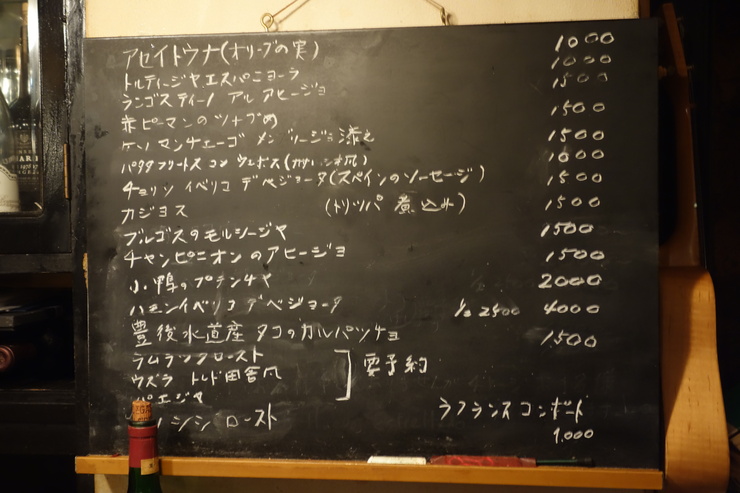 アセイトウナ(オリーブの実) 1000
トルティージャ エスパニョーラ 1000
ランゴスティーノ アル アヒージョ 1500
赤ピーマンのツナづめ 1500
ケソ マンチェーゴ メンブリージョ添え 1500
パタタフリートス コン ウェボス 1000
チョリソ イベリコ デ ベジョータ(スペインのソーセージ) 1500
カジョス (トリッパ 煮込み) 1500
ブルゴスのモルシージャ 1500
チャンピニオンのアヒージョ 1500
小鴨のプランチャ 2000
ハモンイベリコ デ ベジョータ 1/2 2400 4000
豊後水道産 タコのカルパッチョ 1500
ラムラックロースト
ウズラ トレド田舎風 要予約
パエジャ
ノシシ ロースト
ラフランス コンポート
1,000